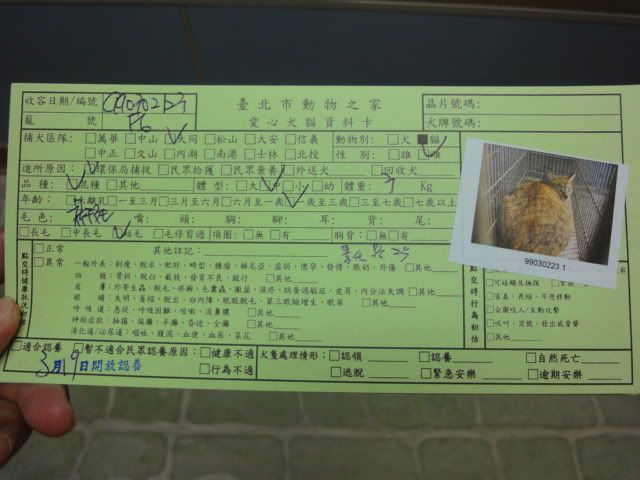 收容日期/編號 臺北市動物之家 晶片號碼:
籠 號 F6 愛心犬貓資料卡 犬牌號碼:
捕犬區隊: □萬華 □中山 □大同 □松山 □大安 □信義 動物別: □犬 ■貓
□中正 □文山 □內湖 □南港 □士林 □北投 性 別: □雄 □雌
進所原因: □環保局捕捉 □民眾拾獲 □民眾棄養 □外送犬 □回收犬
品 種: □混種 □其他 體 型: □大 □中 □小 □幼 體重: 3 Kg
年齡: □未離乳 □一至三月 □三月至六月 □六月至一歲 □一歲至三歲 □三至七歲 □七歲以上
毛 色: 嘴: 頭: 胸: 腳: 耳: 背: 尾:
□長毛 □中長毛 □短毛 □毛修剪過 項圈: □無 □有 胸背: □無 □有
點交時健康狀況初估 □正常 其他註記:
□異常 一般外表: 削瘦、脫水、肥胖、畸型、腫瘤、赫尼亞、虛弱、懷孕、發情、脹奶、外傷 □其他
四 肢: 骨折、脫臼、截肢、發育不良、跛行 □其他
皮 膚: 外寄生蟲、脫毛、疥癬、毛囊蟲、黴菌、濕疹、跳蚤過敏症、皮屑、內分泌失調 □其他
眼 睛: 失明、萎縮、脫出、白內障、眼瞼脫毛、第三眼瞼增生、眼屎 □其他
呼 吸 道: 急促、呼吸困難、咳嗽、流鼻膿 □其他
神經症狀: 抽搐、偏癱、半癱、昏迷、全癱 □其他
消化道/泌尿道: 嘔吐、腹瀉、血便、血尿、菜花 □其他
99030223.1
點交時行為初估
□可碰觸及撫摸
□害羞、畏縮、不想移動
□會圍咬人/主動攻擊
□吠叫、哭號、發出威脅聲
□其他
□適合認養 □暫不適合民眾認養原因: □健康不適 犬隻處理情形: □認領 □認養 □自然死亡
3月19日開放認養 □行為不適 □逃脫 □緊急安樂 □逾期安樂